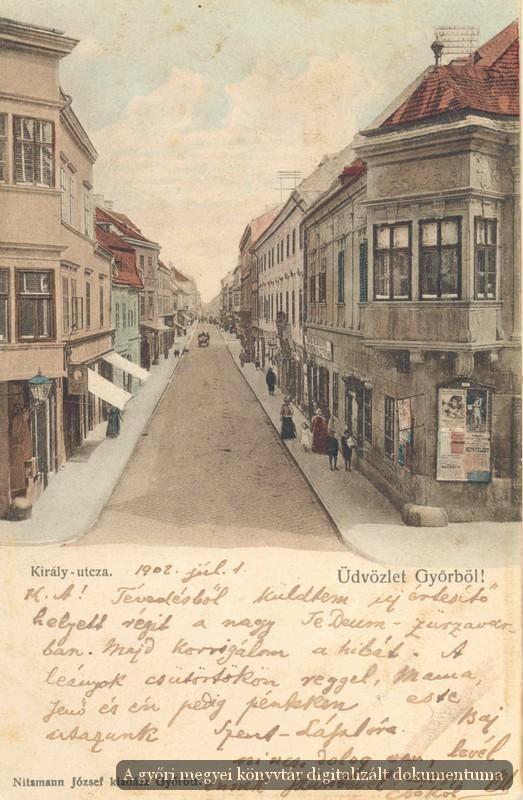 Király-utcza.
1902. júl. 1
Üdvözlet Győrből!
K. A! Tévedésből küldtem új értesítő
helyett régit a nagy TeDeum-zűrzavar-
ban. Majd korrigálom a hibát. A
leányok csütörtökön reggel, Mama,
Jenő és én pedig pénteken este
utazunk Szent-Lászlóra. Baj
nincs. Dolog van, levél
Nitsmann József kiadása Győrött.
A győri megyei könyvtár digitalizált dokumentuma
csókol